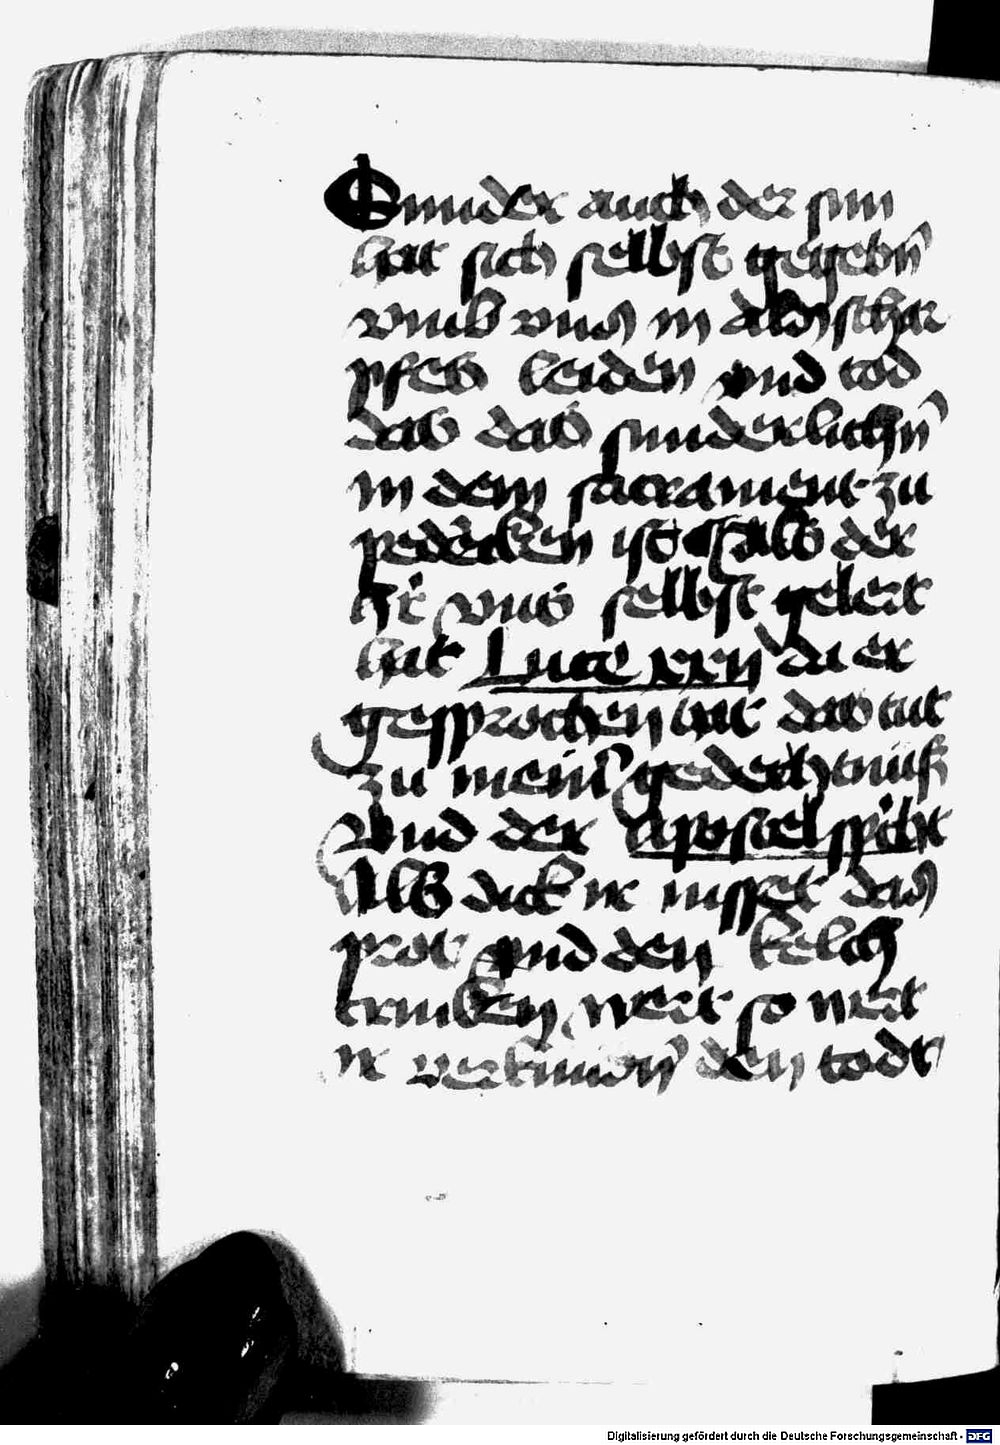 Sunder auch der sun
hat sich selbst gegebn̄
vmb vns in  schar
pfes leiden vnd tod
das das sunderlichn̄
in dem sacrament zu
pedēcken ist Als der
hr̄ vns selbst gelert
hat Luce xxij da er
gesprochen hat das tut
zu mein̄ gedechtnuß
Vnd der apostel spͥcht
Als dick ir  das
prot vnd den kelch
trincken wert so wert
ir  den tods
Digitalisierung gefördert durch die Deutsche Forschungsgemeinschaft - DFG